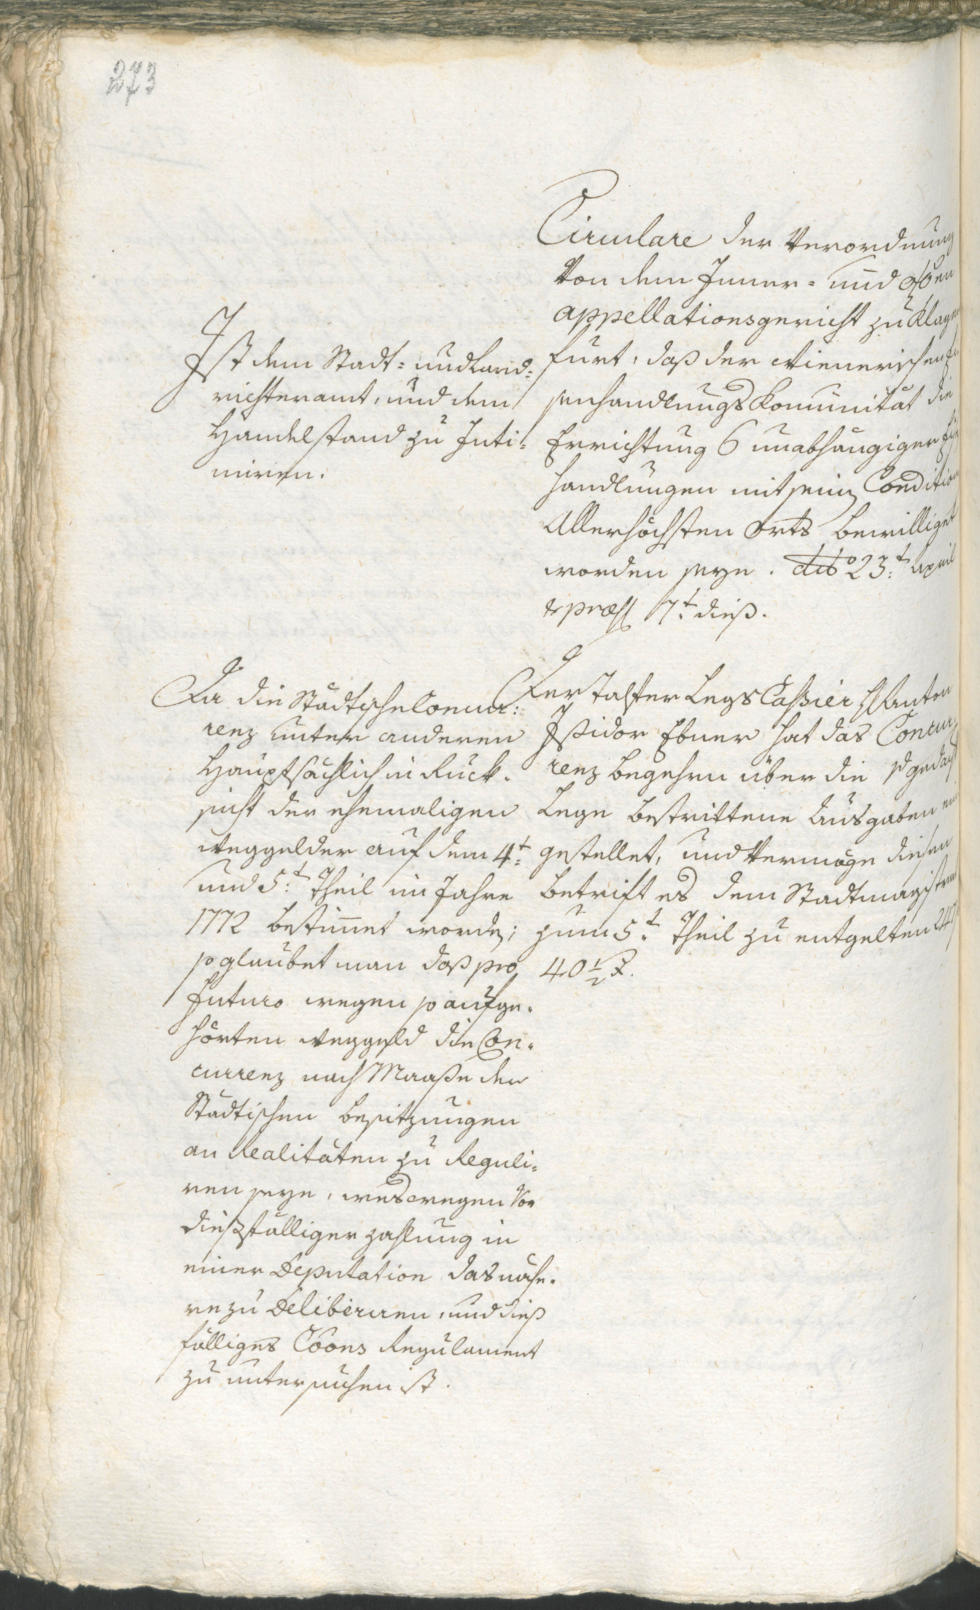 273
Circulare der Verordnung
Von dem Inner- und
appellationsgericht zu Klagen
furt, daß der Wienerischen
senhandlungs Komunität die
Errichtung 6 unabhängiger
handlungen mit seinen Condition
Allerhöchsten Orts bewilliget
worden seye. dto 23:t April
& præs 7t dieß.
Ist dem Stadt- und Land-
richteramt, und dem
Handelstand zu Inti-
miren.
Der Talfer Legs Cassier H Anton
Issidor Ebner hat das Concur
renz begehren über die
Lege bestrittene Ausgaben
gestellet, und Vermöge diesen
betrift es dem Stadtmagistrat
zum 5t Theil zu entgelten
40 1/2 x.
Da die Städtische Concur:
renz unter anderen
Hauptsächlich in Rück-
sicht der ehemaligen
Weggelder auf dem 4t
und 5:t Theil im Jahre
1772 bestimet worden;
so glaubet man daß pro
Futuro wegen so aufge-
hörten Weggeld die Con-
currenz nach Maaße der
Städtischen besitzungen
an Realitäten zu Reguli-
ren seye, weswegen Vor
dießfälliger zahlung in
einer Deputation das nähe-
re zu Deliberiren, und dieß
fälliges Coons Regulament
zu untersuchen ist.